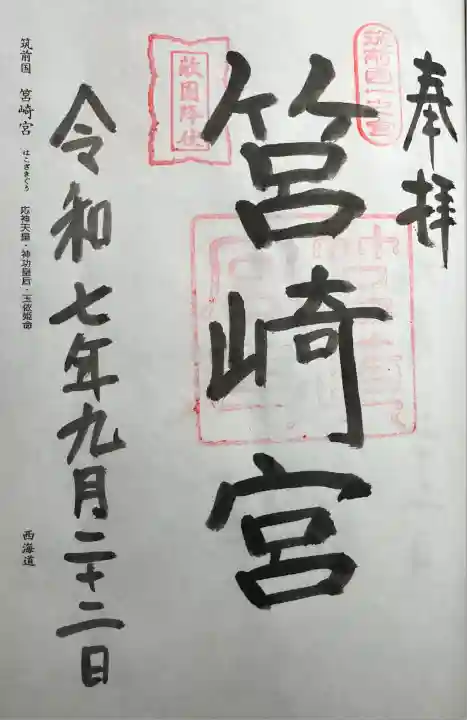 奉拝
筑前国一之宮
筥崎宮
敵国降伏
令和七年九月二十二日
筑前国 筥崎宮 はこざきぐう 応神天皇・神功皇后・玉依姫命 西海道